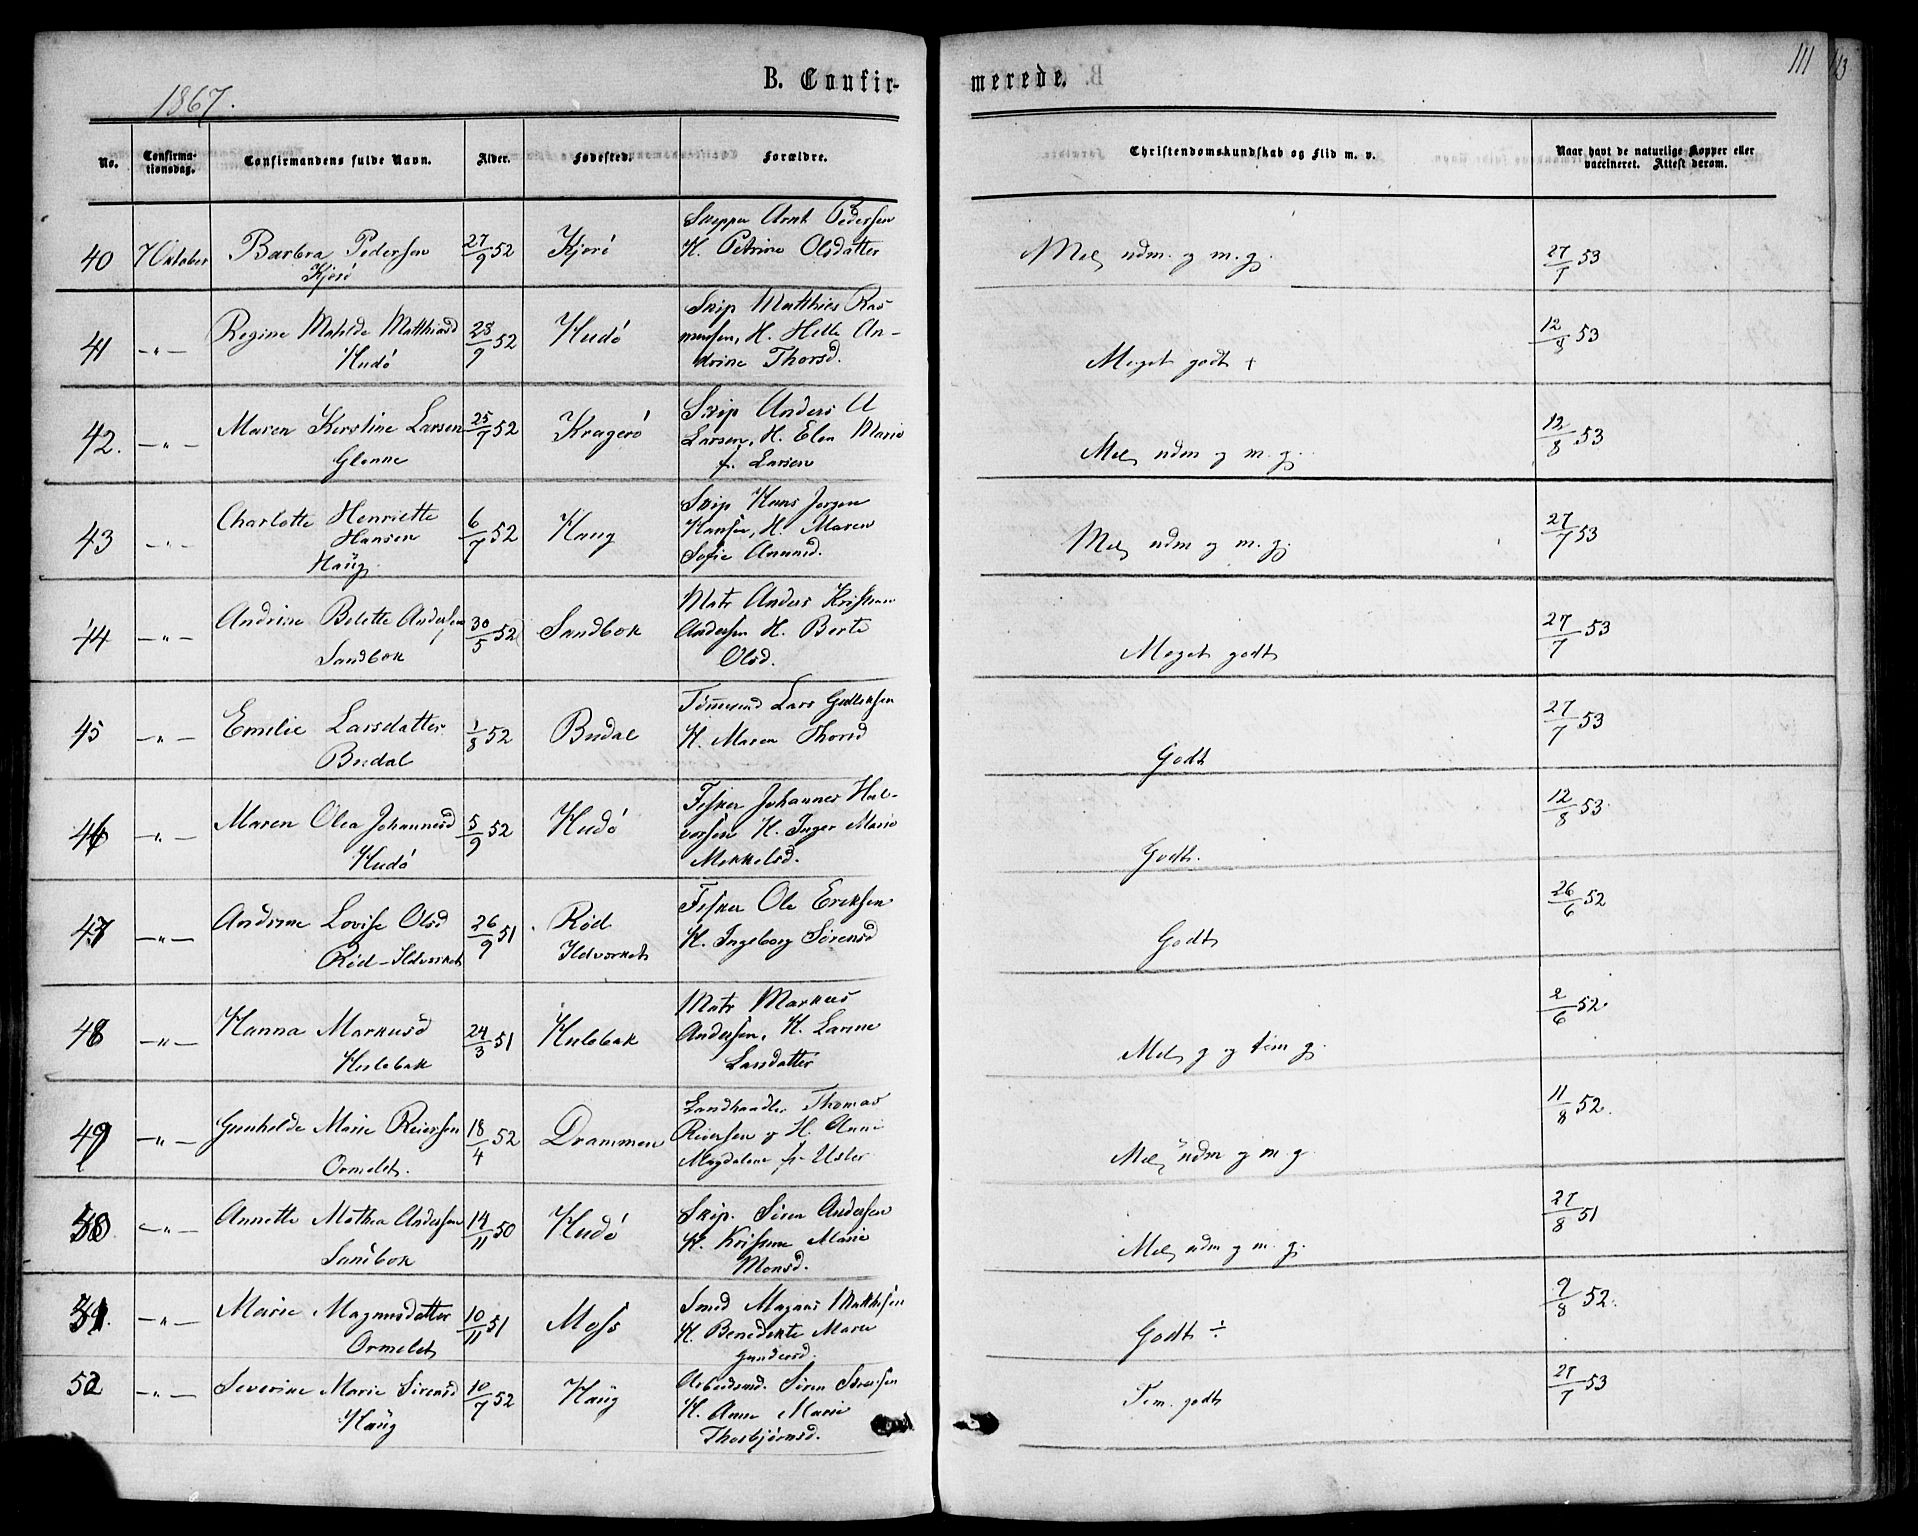 1867.
B. Confir-
merede.
111
113
No.
Confirma-
tionsdag.
Confirmandens fulde Navn.
Alder.
Fødested.
Forældre.
Christendomskundskab og Flid m. v.
Naar havt de naturlige Kopper eller
vaccineret. Attest derom.
40 7 Oktober Barbra Pedersen 27/9 52 Kjerö Arnt Pedersen
Kjerö H. Petrine Olsdatter
Mel. udm. g m. g. 27/7 53
41 -"- Regine Matthiasd 28/9 52 Hudö Skip Matthies Ras-
Hudö mussen, H. Helle An-
drine Thorsd.
Meget godt + 12/8 53
42. -"- Maren Kirstine Larsen 25/7 52 Kragerö Skip Anders A
Glenne Larsen, H. Elen Marie
f. Larsen
Mel. udm g m. g. 12/8 53
43 -"- Charlotte Henriette 6/7 52 Haug Skip Hans Jørgen
Hansen Hansen, H. Maren
Haüg. Sofie Amund.
Mel. udm g m. g. 27/7 53
44 -"- Andrine Belette Andersen 30/5 52 Sandbok Matr Anders Kristian
Sandbok Andersen H. Berte
Olsd.
Meget godt 27/7 53
45 -"- Emilie Larsdatter 1/8 52 Budal Tømmermd Lars Gulliksen
Budal H. Maren Thorsd
Godt 27/7 53
46 -"- Maren Olea Johannesd 5/9 52 Hudö Fisker Johannes Hal-
Hudö vorsen H. Inger Marie
Mekkelsd.
Godt. 12/8 53
47 -"- Andrine Lovise Olsd 26/9 51 Röd Fisker Ole Eriksen
Röd-Ildverket Ildverket H. Ingeborg Sørensd
Godt 26/6 52
48 -"- Hanna Markusd 24/3 51 Hulebak Matr Markus
Hulebak Andersen, H. Larine
Larsdatter
Mel. g og tem g. 2/6 52.
49 -"- Gunhilde Marie Reiersen 18/4 52 Drammen Landhandler Thomas
Ormelet. Reiersen og H. Anne
Magdalene f.
Mel. udm g m. g. 11/8 52.
50 -"- Annette Mathea Andersen 14/11 50 Hudö Skip. Sören Andersen
Sandbok H. Kristine Marie
Monsd.
Mel. udm g m. g. 27/8 51
51. -"- Marie Magnusdatter 10/11 51 Moss Smed Magnus Mathisen
Ormelet H. Benedikte Marie
Gundersd.
Godt ÷ 2/8 52.
52 -"- Severine Marie Sörensd 10/7 52 Haüg Arbeidsmd. Sören Sörensen
Haüg H. Anne Marie
Thorbjørnsd.
Tem. godt 27/7 53